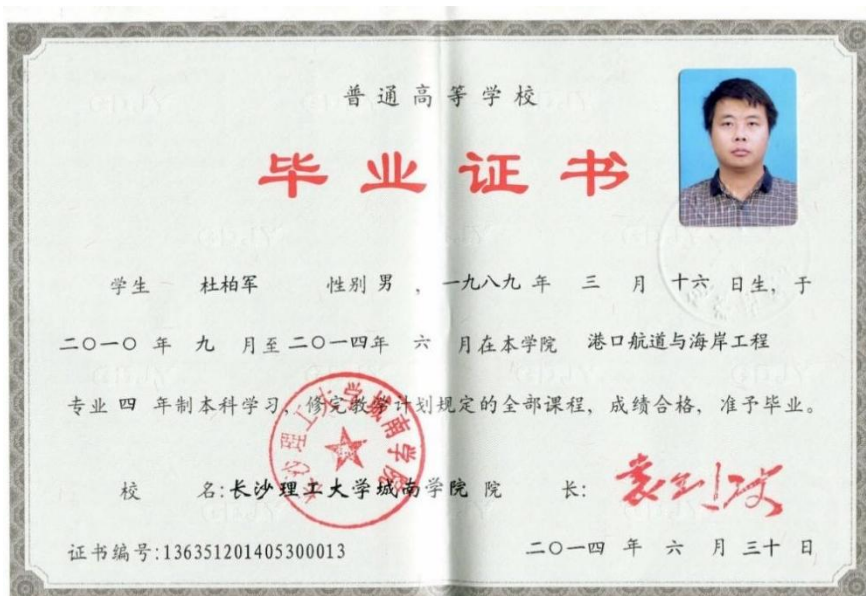 普通高等学校
毕业证书
学生 杜柏军 性别 男 , 一九八九 年 三 月 十六 日生, 于
二〇一〇 年 九 月至 二〇一四年 六 月在本学院 港口航道与海岸工程
专业 四 年制本科学习, 修完教学计划规定的全部课程, 成绩合格, 准予毕业。
校 名:长沙理工大学城南学院 院 长:
长沙理工大学城南学院
证书编号:136351201405300013 二〇一四 年 六 月 三十 日